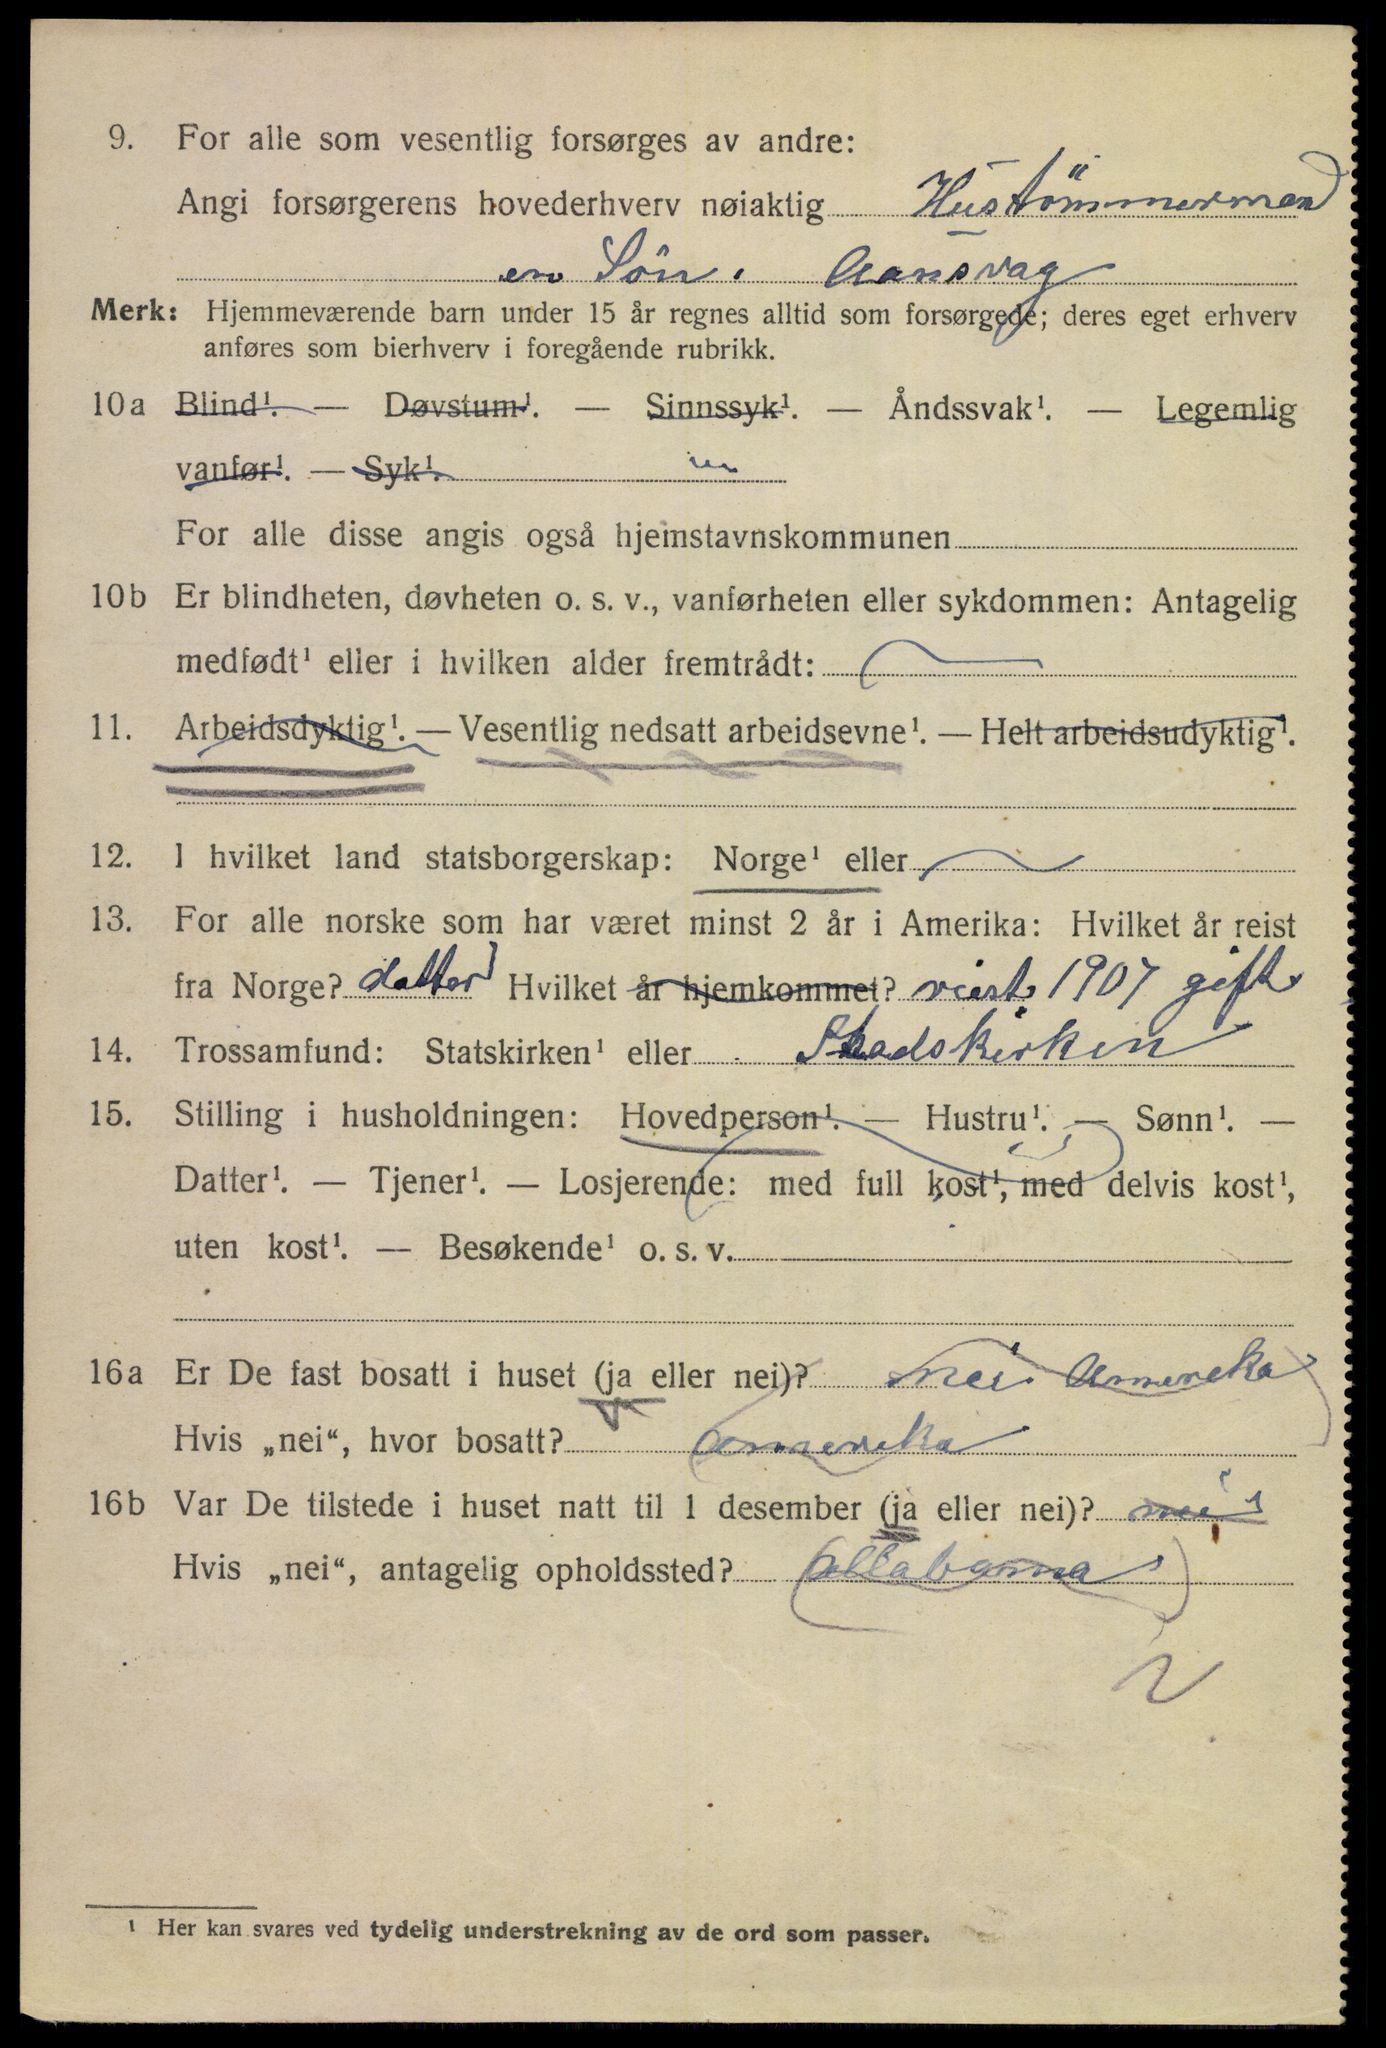 9. For alle som vesentlig forsørges av andre:
Angi forsørgerens hovederhverv nøiaktig Hüstömmermand
en Sön. Aansvag
Merk: Hjemmeværende barn under 15 år regnes alltid som forsørgede; deres eget erhverv
anføres som bierhverv i foregående rubrikk.
10a Blind¹. — Døvstum¹. — Sinnssyk¹. — Åndssvak¹. — Legemlig
vanfør¹. — Syk¹.
For alle disse angis også hjemstavnskommunen
10b Er blindheten, døvheten o. s. v., vanførheten eller sykdommen: Antagelig
medfødt¹ eller i hvilken alder fremtrådt:
11. Arbeidsdyktig¹. — Vesentlig nedsatt arbeidsevne¹. — Helt arbeidsudyktig¹.
12. I hvilket land statsborgerskap: Norge¹ eller
13. For alle norske som har været minst 2 år i Amerika: Hvilket år reist
fra Norge? datter Hvilket år hjemkommet? riest 1907 gift
14. Trossamfund: Statskirken¹ eller Stadskirken
15. Stilling i husholdningen: Hovedperson¹. — Hustru¹. — Sønn¹. —
Datter¹. — Tjener¹. — Losjerende: med full kost¹, med delvis kost¹,
uten kost¹. — Besøkende¹ o. s. v.
16a Er De fast bosatt i huset (ja eller nei)? nei. Amereka
Hvis „nei“, hvor bosatt? Amereka
16b Var De tilstede i huset natt til 1 desember (ja eller nei)? nei
Hvis „nei“, antagelig opholdssted? allabama
¹ Her kan svares ved tydelig understrekning av de ord som passer.